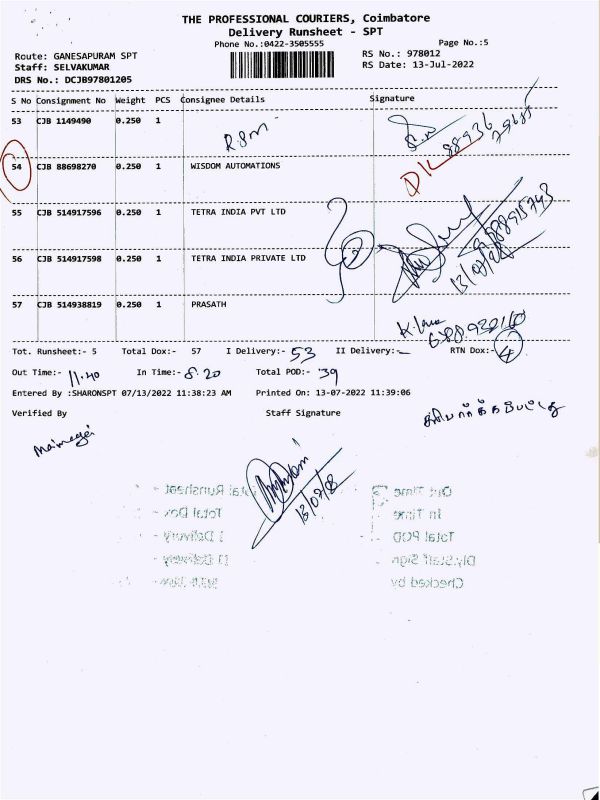 THE PROFESSIONAL COURIERS, Coimbatore
Delivery Runsheet - SPT
Phone No.:0422-3505555
Page No.:5
Route: GANESAPURAM SPT
RS No.: 978012
Staff: SELVAKUMAR
RS Date: 13-Jul-2022
DRS No.: DCJB97801205
S No Consignment No Weight PCS Consignee Details Signature
53 CJB 1149490 0.250 1
R.S.M
54 CJB 88698270 0.250 1 WISDOM AUTOMATIONS
55 CJB 514917596 0.250 1 TETRA INDIA PVT LTD
56 CJB 514917598 0.250 1 TETRA INDIA PRIVATE LTD
57 CJB 514938819 0.250 1 PRASATH
Tot. Runsheet:- 5 Total Dox:- 57 I Delivery:- 53 II Delivery:- RTN Dox:- 4
Out Time:- 11.40 In Time:- 8.20 Total POD:- 39
Entered By :SHARONSPT 07/13/2022 11:38:23 AM Printed On: 13-07-2022 11:39:06
Verified By Staff Signature
Total Runsheet Out Time
Total Dox In Time
I Delivery Total POD
II Delivery Dly.Staff Sign
Checked by